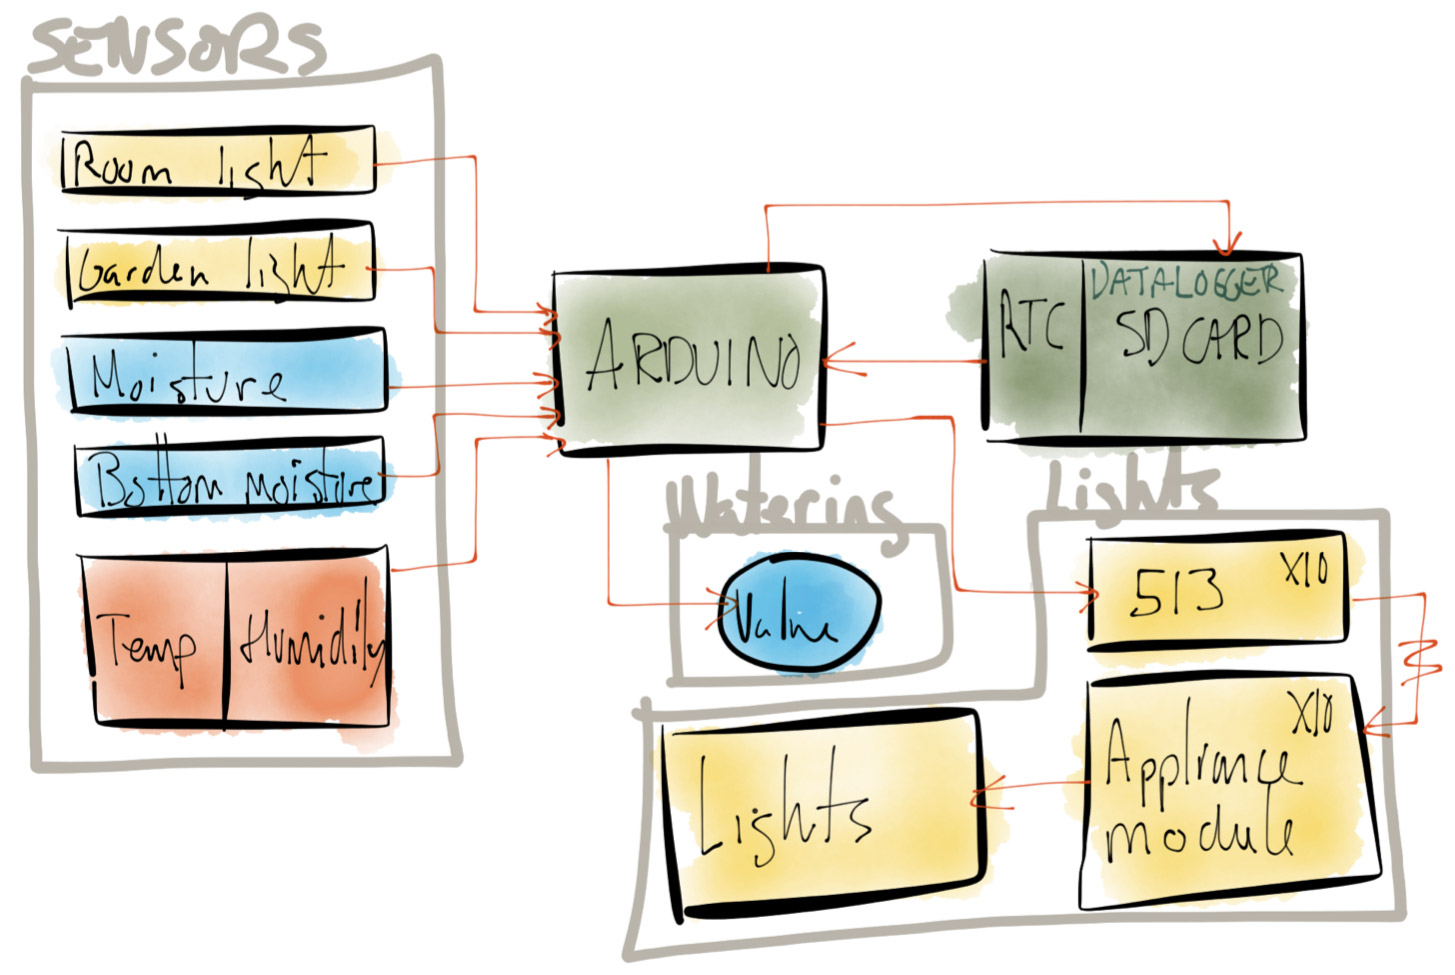 SENSORS
Room light
Garden light
Moisture
Bottom moisture
Temp
Humidity
ARDUINO
RTC
DATALOGGER
SD CARD
Watering
Valve
Lights
513
X10
X10
Appliance
module
Lights